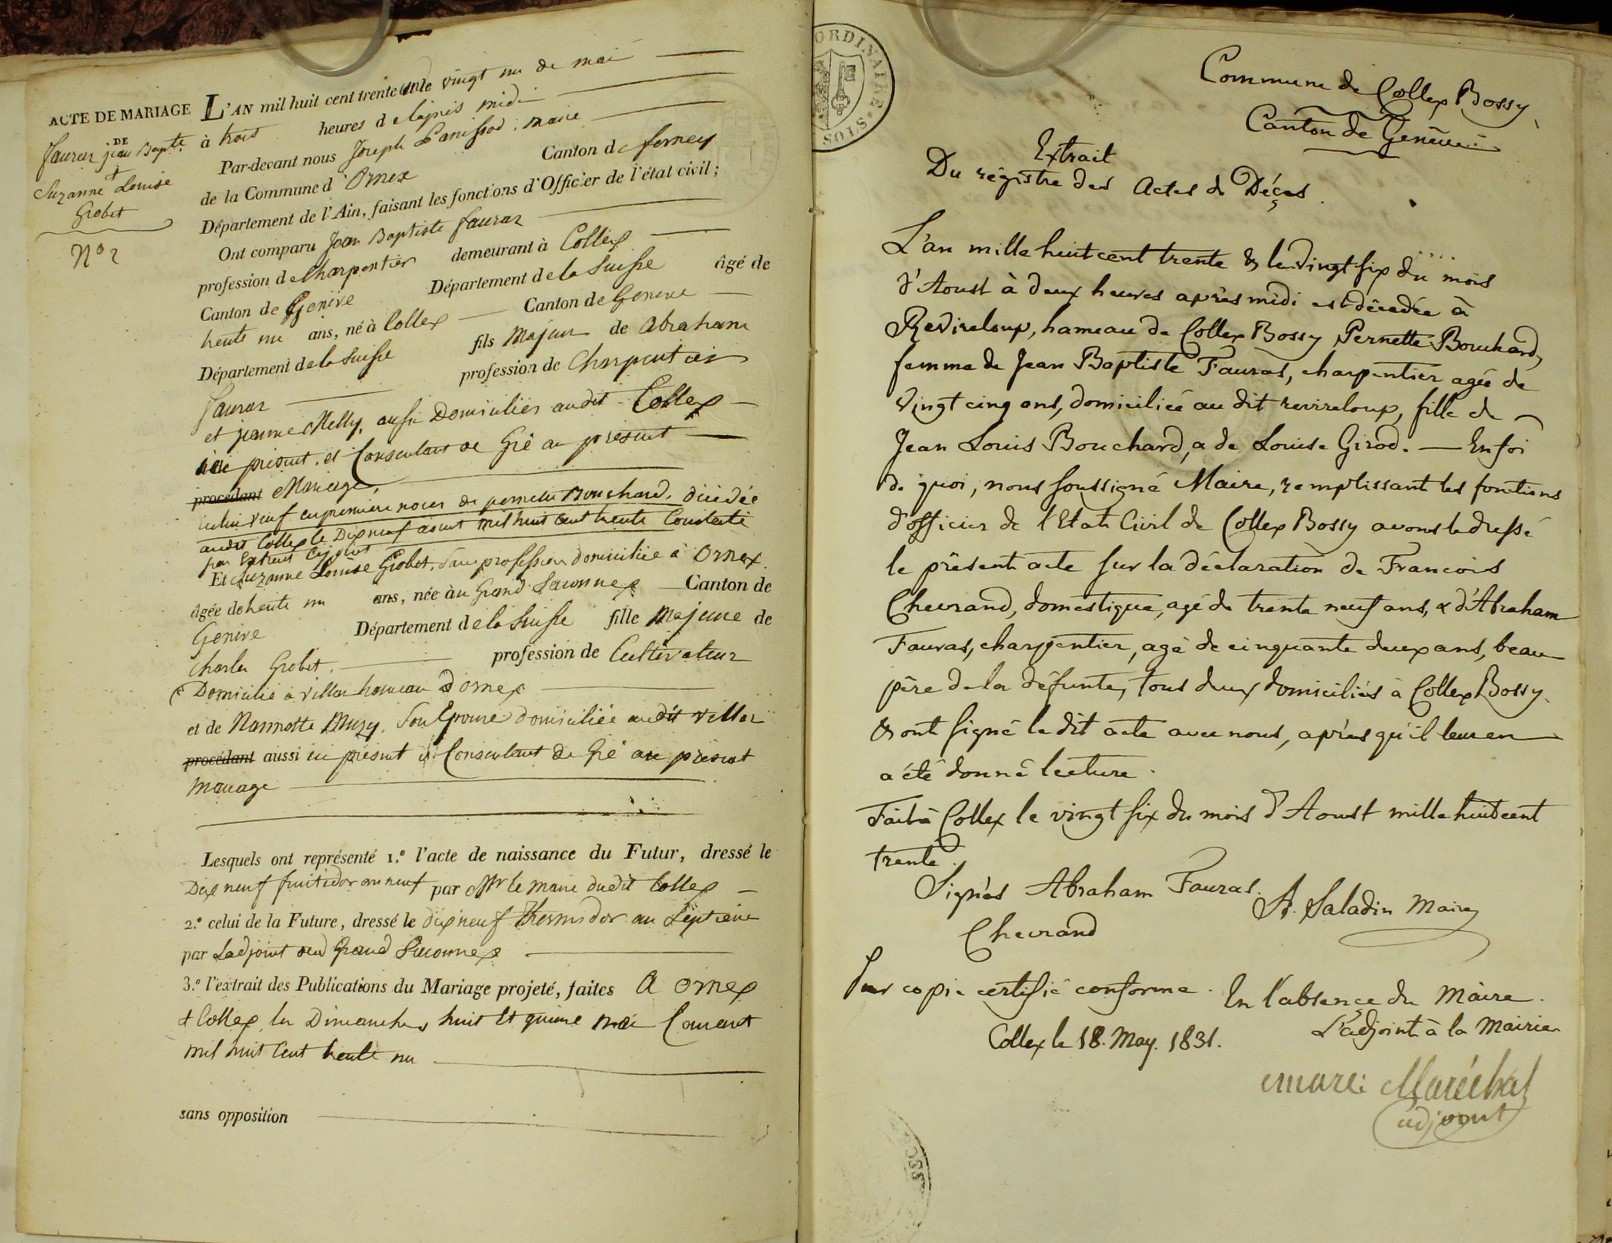 ACTE DE MARIAGE
DE
Fauraz jean Bapte
+
Suzanne Louise
Grobet
No 2
L'AN mil huit cent trente un le vingt un de mai
à trois heures de laprès midi
Par-devant nous Joseph Panissod, maire
de la Commune d'Ornex Canton de ferney
Département de l'Ain, faisant les fonctions d'Officier de l'état civil;
Ont comparu Jean Baptiste Fauraz
profession de Charpentier demeurant à Collex
Canton de Genève Département de la Suisse âgé de
trente un ans, né à Collex Canton de Geneve
Département de la Suisse fils Majeur de Abraham
Fauraz profession de Charpentier
et jeanne Melly, aussi Domiciliés audit Collex
ici présent, et Consentant de Gré au présent
procédant Mariage,
veuf en première noces de pernette Bouchard, décédée
audit Collex le Dix neuf aout mil huit cent trente Constaté
par Extrait ci joint
Et Suzanne Louise Grobet, Sans profession domiciliée à Ornex
âgée de trente un ans, née au Grand Saconnex Canton de
Genève Département de la Suisse fille Majeure de
Charles Grobet, profession de Cultivateur
Domicilié à Villar hameau Dornex
et de Nannette Muzy, Son Epouse domiciliée audit Villar
procédant aussi ici présent et Consentant de Gré au présent
Mariage
Lesquels ont représenté 1.º l'acte de naissance du Futur, dressé le
Dix neuf fructidor an neuf par Mr le maire dudit Collex
2.º celui de la Future, dressé le dix neuf Thermidor an Septieme
par Ladjoint du Grand Saconnex
3.º l'extrait des Publications du Mariage projeté, faites A Ornex
& Collex, les Dimanches huit et quinze Mai Courant
mil huit Cent trente un
sans opposition
ORDINAIRE
Commune de Collex Bossy
Canton de Genève
Extrait
Du régistre des Actes de Décès.
L'an mille huit cent trente & le vingt six du mois
d'Aoust à deux heures après midi est décédée à
Revireloup, hameau de Collex Bossy Pernette Bouchard,
femme de Jean Baptiste Fauras, charpentier agée de
vingt cinq ans, domiciliée au dit revireloup, fille de
Jean Louis Bouchard, & de Louise Girod. — En foi
de quoi, nous soussigné Maire, remplissant les fonctions
d'officier de l'Etat Civil de Collex Bossy avons dressé
le présent acte sur la déclaration de Francois
Chevrand, domestique, agé de trente neuf ans, & d'Abraham
Fauras, charpentier, agé de cinquante deux ans, beau
père de la défunte, tous deux domiciliés à Collex Bossy.
& ont signé le dit acte avec nous, après qu'il leur en
a été donné lecture.
Fait à Collex le vingt six du mois d'Aoust mille huit cent
trente.
Signés Abraham Fauras. A. Saladin Maire
Chevrand
Pour copie certifié conforme. En l'absence du Maire.
Collex le 18. May. 1831. L'adjoint à la Mairie
Maréchal
adjoint